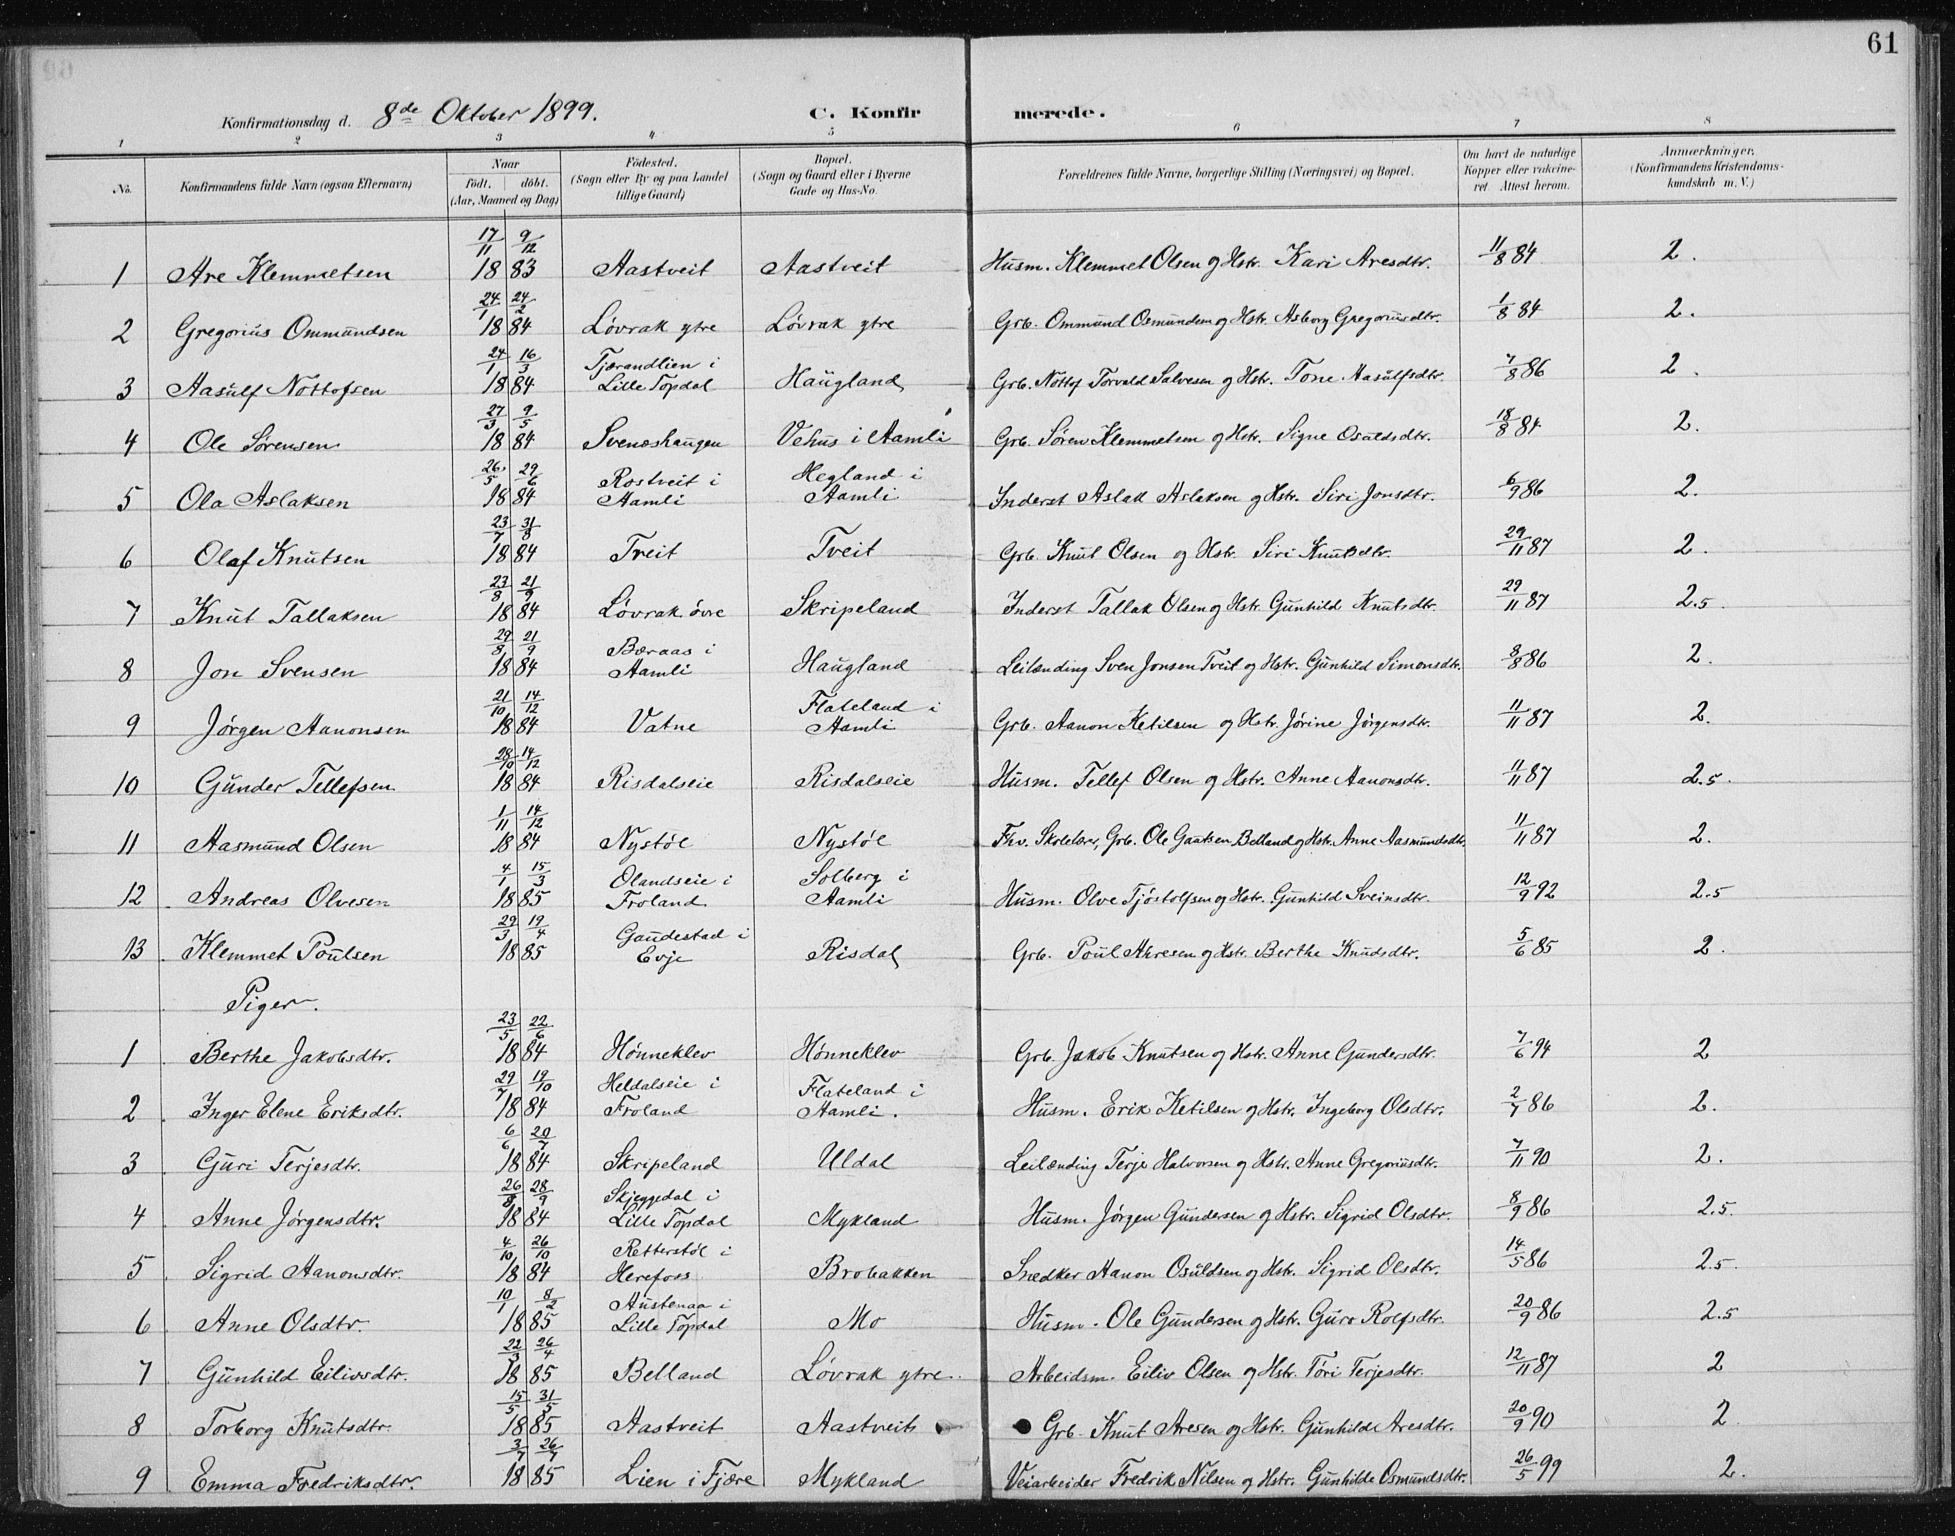 61
Konfirmationsdag d. 8de Oktober 1899. C. Konfirmerede.
1 2 3 4 5 6 7 8
No. Konfirmandens fulde Navn (ogsaa Efternavn) Naar født. døbt. (Aar, Maaned og Dag) Fødested. (Sogn eller By og paa Landet tillige Gaard) Bopæl. (Sogn og Gaard eller i Byerne Gade og Hus-No. Forældrenes fulde Navne, borgerlige Stilling (Næringsvei) og Bopæl. Om havt de naturlige Kopper eller vakcineret. Attest herom. Anmærkninger. (Konfirmandens Kristendomskundskab m. V.)
1 Are Klemmetsen 17/11 9/12 1883 Aastveit Aastveit Husm. Klemmet Olsen og Hstr. Kari Aresdtr. 11/8 84 2.
2 Gregorius Ommundsen 24/1 24/2 1884 Løvrak ytre Løvrak ytre Grb. Ommund Osmundsen og Hstr. Asborg Gregoriusdtr. 1/8 84 2.
3 Aasulf Nottofsen 24/1 16/3 1884 Tjærandlien i Lille Topdal Haugland Grb. Nottof Torvald Salvesen og Hstr. Tone Aasulfsdtr. 7/8 86 2.
4 Ole Sørensen 27/3 9/5 1884 Svenæshaugen Vehus i Aamli Grb. Søren Klemmetsen og Hstr. Signe Osuldsdtr. 18/8 84 2.
5 Ola Aslaksen 26/5 29/6 1884 Rostveit i Aamli Hegland i Aamli Inderst Aslak Aslaksen og Hstr. Siri Jonsdtr. 6/9 86 2.
6 Olaf Knutsen 23/7 31/8 1884 Tveit Tveit Grb. Knut Olsen og Hstr. Siri Knutsdtr. 29/11 87 2.
7 Knut Tallaksen 23/8 21/9 1884 Løvrak øvre Skripeland Inderst Tallak Olsen og Hstr. Gunhild Knutsdtr. 29/11 87 2.5
8 Jon Svensen 29/8 21/9 1884 Bæraas i Aamli Haugland Leilænding Sven Jonsen Tveit og Hstr. Gunhild Simonsdtr. 8/8 86 2.
9 Jørgen Aanonsen 21/10 14/12 1884 Vatne Flateland i Aamli Grb. Aanon Ketilsen og Hstr. Jørine Jørgensdtr. 11/11 87 2.
10 Gunder Tellefsen 28/10 14/12 1884 Risdalseie Risdalseie Husm. Tellef Olsen og Hstr. Anne Aanonsdtr. 11/11 87 2.5.
11 Aasmund Olsen 1/11 14/12 1884 Nystøl Nystøl Fhv. Skolelærer, Grb. Ole Belland og Hstr. Anne Aasmundsdtr. 11/11 87 2.
12 Andreas Olvesen 4/1 15/3 1885 Olandseie i Froland Solberg i Aamli Husm. Olve Tjøstolfsen og Hstr. Gunhild Sveinsdtr. 12/9 92 2.5
13 Klemmet Poulsen 29/3 19/4 1885 Gaudestad i Evje Risdal Grb. Poul og Hstr. Berthe Knudsdtr. 5/6 85 2.
Piger.
1 Berthe Jakobsdtr. 23/5 22/6 1884 Hønneklev Hønneklev Grb. Jakob Knutsen og Hstr. Anne Gundersdtr. 7/6 94 2
2 Inger Elene Eriksdtr. 29/7 19/10 1884 Heldalseie i Froland Flateland i Aamli. Husm. Erik Ketilsen og Hstr. Ingeborg Olsdtr. 2/7 86 2.
3 Guri Terjesdtr. 6/6 20/7 1884 Skripeland Uldal Leilænding Terje Halvorsen og Hstr. Anne Gregoriusdtr. 7/11 90 2.
4 Anne Jørgensdtr. 26/8 28/9 1884 Skjeggedal i Lille Topdal Mykland Husm. Jørgen Gundersen og Hstr. Sigrid Olsdtr. 8/9 86 2.5.
5 Sigrid Aanonsdtr. 4/10 26/10 1884 Retterstøl i Herefoss Brobakken Snedker Aanon Osuldsen og Hstr. Sigrid Olsdtr. 14/5 86 2.5.
6 Anne Olsdtr. 10/1 8/2 1885 Austenaa i Lille Topdal Mo Husm. Ole Gundersen og Hstr. Guro Rolfsdtr. 20/9 86 2.5
7 Gunhild Eilivsdtr. 22/3 26/4 1885 Belland Løvrak ytre. Arbeidsm. Eiliv Olsen og Hstr. Tøri Terjesdtr. 12/11 87 2
8 Torborg Knutsdtr. 15/5 31/5 1885 Aastveit Aastveit Grb. Knut Aresen og Hstr. Gunhilde Aresdtr. 20/9 90 2
9 Emma Fredriksdtr. 3/7 26/7 1885 Lien i Fjære Mykland Veiarbeider Fredrik Nilsen og Hstr. Gunhilde Osmundsdtr. 26/5 99 2.